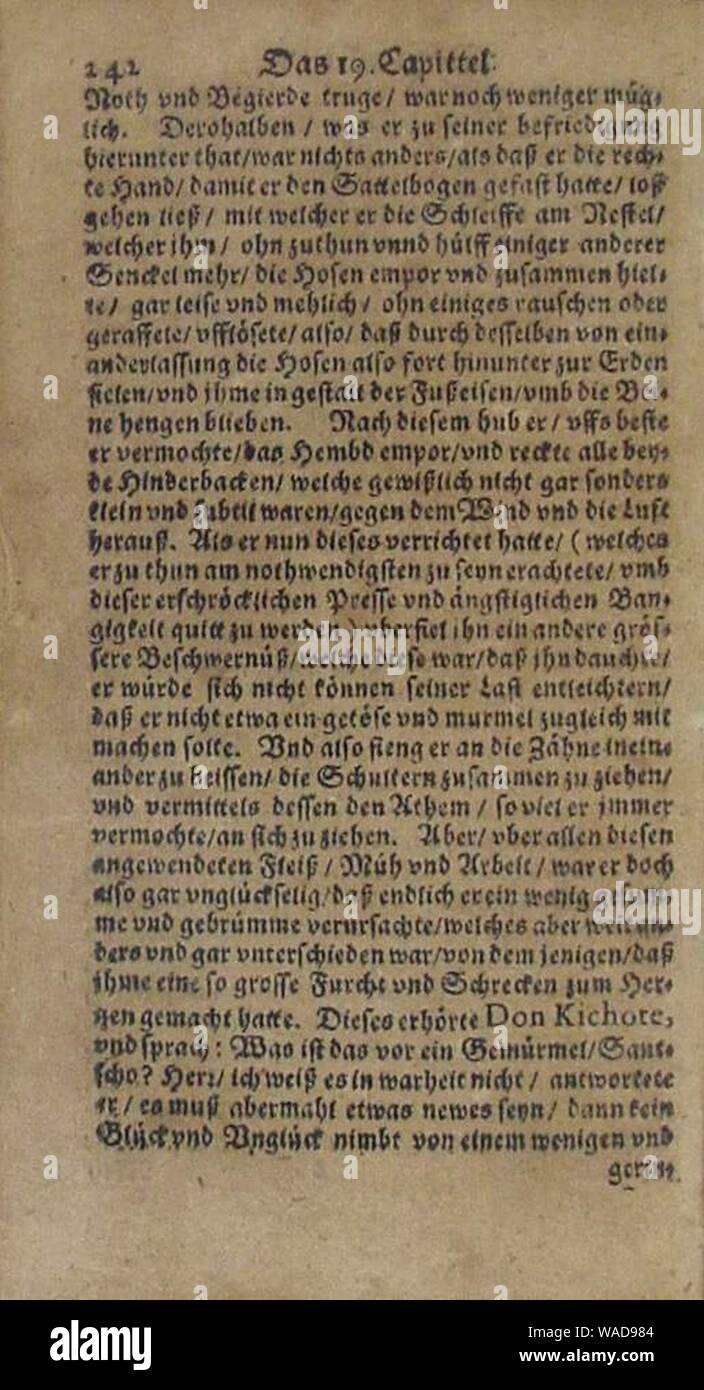 242 Das 19. Capittel
Noth vnd Begierde truge/ war noch weniger müg⸗
lich. Derohalben / was er zu seiner befriedigung
hierunter that/war nichts anders/als daß er die rech⸗
te Hand/ damit er den Sattelbogen gefast hatte/ loß
gehen ließ/ mit welcher er die Schleiffe am Nestel/
welcher jhm/ ohn zuthun vnnd hülff einiger anderer
Senckel mehr/ die Hosen empor vnd zusammen hiel⸗
te/ gar leise vnd mehlich/ ohn einiges rauschen oder
geraffele/ vfflösete/ also/ daß durch desselben von ein⸗
anderlassung die Hosen also fort hinunter zur Erden
fielen/vnd jhme in gestalt der Fußeisen/vmb die Bei⸗
ne hengen blieben. Nach diesem hub er/ vffs beste
er vermochte/das Hembd empor/vnd reckte alle bey⸗
de Hinderbacken/ welche gewißlich nicht gar sonders
klein vnd subtil waren/gegen dem Wind vnd die Luft
herauß. Als er nun dieses verrichtet hatte/ ( welches
er zu thun am nothwendigsten zu seyn erachtete/ vmb
dieser erschröcklichen Presse vnd ängstiglichen Ban⸗
gigkeit quitt zu werden ) vberfiel ihn ein andere grös⸗
sere Beschwernüß/welche diese war/daß jhn dauchte/
er würde sich nicht können seiner Last entleichtern/
daß er nicht etwa ein getöse vnd murmel zugleich mit
machen solte. Vnd also fieng er an die Zähne in ein⸗
ander zu beissen/ die Schultern zusammen zu ziehen/
vnd vermittels dessen den Athem / so viel er jmmer
vermochte/an sich zu ziehen. Aber/ vber allen diesen
angewendeten Fleiß / Müh vnd Arbeit / war er doch
also gar vnglückselig/daß endlich er ein wenig
me vnd gebrümme verursachte/welches aber
ders vnd gar vnterschieden war/von dem jenigen/daß
jhme eine so grosse Furcht vnd Schrecken zum Her⸗
tzen gemacht hatte. Dieses erhörte Don Kichote,
vnd sprach: Was ist das vor ein Gemürmel/Sant⸗
scho? Herr/ ich weiß es in warheit nicht / antwortete
er/ es muß abermahl etwas newes seyn/ dann kein
Glück vnd Vnglück nimbt von einem wenigen vnd
gerin⸗
alamy
Image ID: WAD984
www.alamy.com